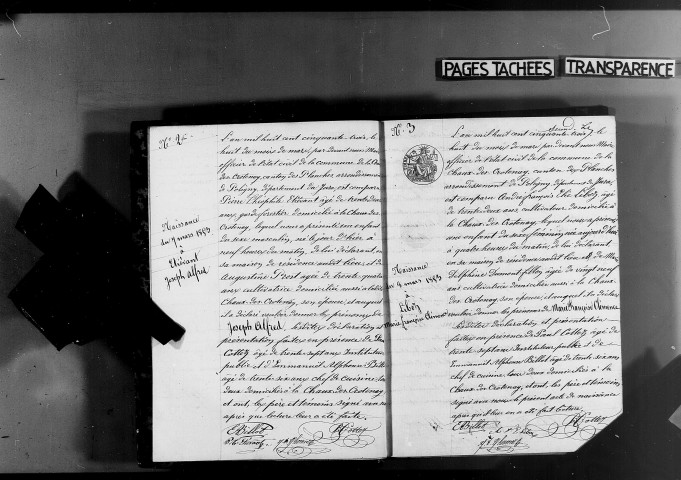 PAGES TACHEES
TRANSPARENCE
N° 2
Naissance
du 7 mars 1853
Thévant
Joseph Alfred
L'an mil huit cent cinquante trois, le
huit du mois de mars, par devant nous Maire
officier de l'état civil de la commune de la Chaux
des Crotenay, canton des Planches arrondissement
de Poligny, département du Jura, est comparu
Pierre Théophile Thévant âgé de trente deux
ans, garde forestier domicilié à la Chaux des
Crotenay, lequel nous a présenté un enfant
du sexe masculin, né le jour d'hier à
neuf heures du matin, de lui déclarant en
sa maison de résidence audit lieu, et de
Augustine Prost agée de trente quatre
ans cultivatrice domiciliée aussi à la
Chaux des Crotenay, son épouse, et auquel
il a déclaré vouloir donner les prénoms de
Joseph Alfred. Lesdites déclaration et
présentation faites en présence de Paul
Cottez âgé de trente sept ans Instituteur
public et d'Emmanuel Alphonse Billet
âgé de trente six ans chef de cuisine, tous
deux domiciliés à la Chaux des Crotenay
et ont, les père et témoins signé avec nous
après que lecture leur a été faite.
EBillet
PCottez
N° 3
Naissance
du 8 mars 1853
à
Marie françoise Clémence
L'an mil huit cent cinquante trois, le
huit du mois de mars par devant nous Maire
officier de l'état civil de la commune de la
Chaux des Crotenay, canton des Planches
arrondissement de Poligny, département du Jura,
est comparu André françois
de trente deux ans cultivateur domicilié à
la Chaux des Crotenay, lequel nous a présenté
un enfant du sexe féminin, née aujourd'hui
à quatre heures du matin, de lui déclarant
en sa maison de résidence audit lieu, et de
Delphine âgée de vingt neuf
ans cultivatrice domiciliée aussi à la Chaux
des Crotenay son épouse, et auquel il a déclaré
vouloir donner les prénoms de Marie françoise Clémence
Lesdites déclaration et présentation
faites en présence de Paul Cottez âgé de
trente sept ans Instituteur public et de
Emmanuel Alphonse Billet âgé de trente six ans
chef de cuisine, tous deux domiciliés à la
Chaux des Crotenay, et ont, les père et témoins
signé avec nous le présent acte de naissance
après que lecture en a été faite.
EBillet
PCottez